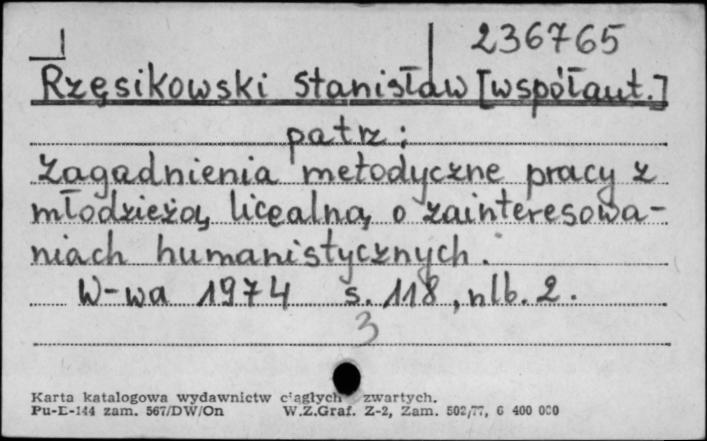 236765
Rzęsikowski Stanisław [współaut.]
patrz:
Zagadnienia metodyczne pracy z
młodzieżą licealną o zainteresowa-
niach humanistycznych.
W-wa 1974 s. 118, nlb. 2.
3
Karta katalogowa wydawnictw ciągłych zwartych.
Pu-E-144 zam. 567/DW/On W.Z.Graf. Z-2, Zam. 502/77, 6 400 000